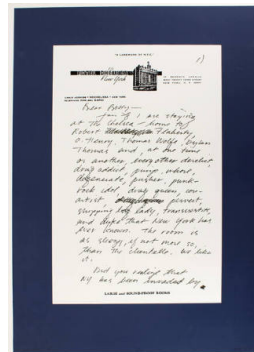 "A LANDMARK OF NEW
HOTEL CHELSEA
New York
1)
Dear Betty—
Jim & I are staying
at the Chelsea – home to
Robert Flaherty,
O. Henry, Thomas Wolfe, Dylan
Thomas and, at one time
or another, every other derelict
drug addict, pimp, whore,
degenerate, pusher, punk-
rock idol, drag queen, con-
artist, pervert,
shopping bag lady, transvestite,
and dupe that New York has
ever known. The room is
as sleazy, if not more so,
than the clientele. We like
it.
Did you realize that
NY has been invaded by
LARGE and SOUND-PROOF ROOMS